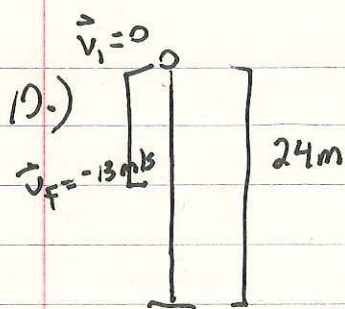 v⃗₁=0
10.)
v⃗_F=-13m/s
24m